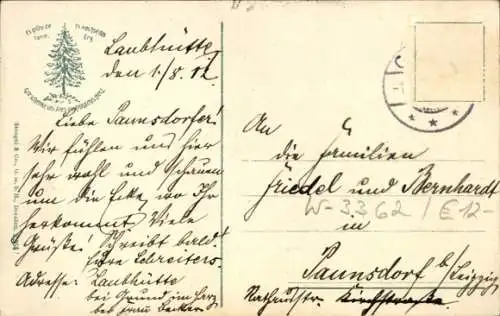 Es grüne die Tanne, Es wachse das Erz
Gott schenke uns allen ein fröhliches Herz
Laubhütte
den 1/8. 12
Liebe Paunsdorfer!
Wir fühlen uns hier
sehr wohl und schauen
um die Ecke, wo Ihr
herkommt. Viele
Grüße! Schreibt bald!
Eure Schreiters.
Adresse: Laubhütte
bei Grund im Harz
bei Frau Decker
An
die Familien
Friedel und Bernhardt
W-3362 / E 12-
in
Paunsdorf b/Leipzig
Rathausstr. Kirchstraße.